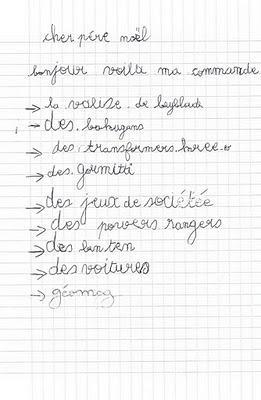 cher père noël
bonjour voila ma commande
→ la valise de beyblade
→ des bakugans
→ des transformers
→ des gormitti
→ des jeux de sociétée
→ des powers rangers
→ des ben ten
→ des voitures
→ géomag